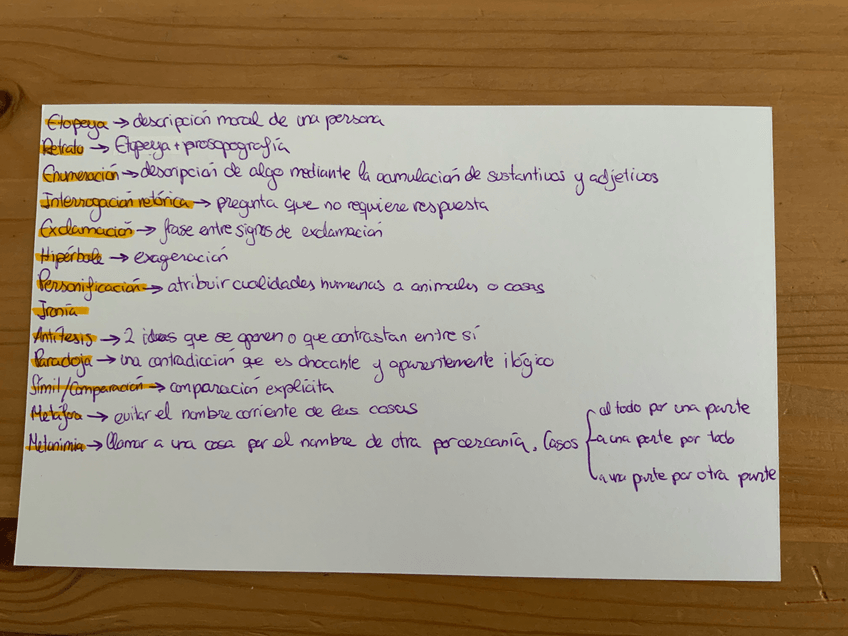 Etopeya → descripción moral de una persona
Retrato → Etopeya + prosopografía
Enumeración → descripción de algo mediante la acumulación de sustantivos y adjetivos
Interrogación retórica → pregunta que no requiere respuesta
Exclamación → frase entre signos de exclamación
Hipérbole → exageración
Personificación → atribuir cualidades humanas a animales o cosas
Ironía
Antítesis → 2 ideas que se oponen o que contrastan entre sí
Paradoja → una contradicción que es chocante y aparentemente ilógico
Símil/Comparación → comparación explícita
Metáfora → evitar el nombre corriente de las cosas
Metonimia → llamar a una cosa por el nombre de otra por cercanía. Casos
al todo por una parte
a una parte por todo
a una parte por otra parte